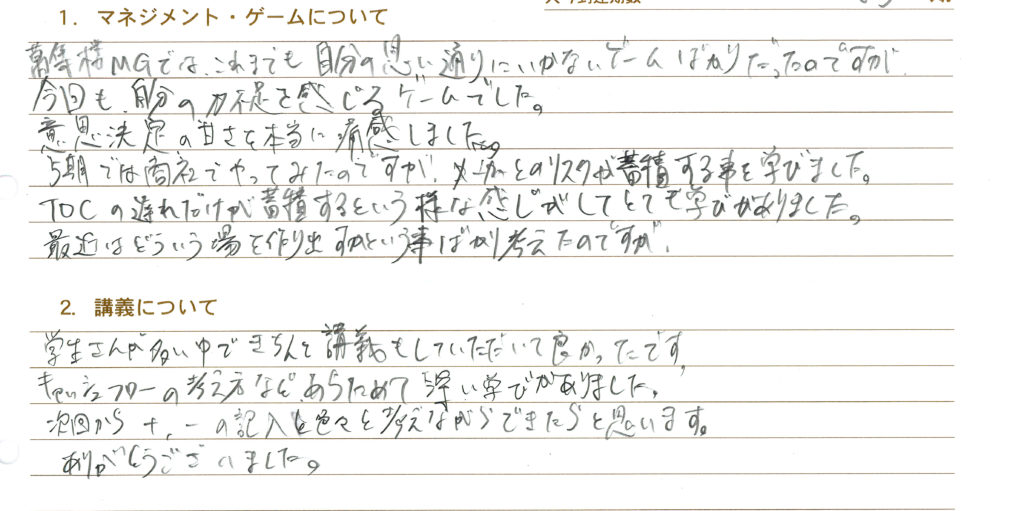 1. マネジメント・ゲームについて
様MGでは、これまでも自分の思い通りにいかないゲームばかりだったのですが、
今回も、自分の力不足を感じるゲームでした。
意思決定の甘さを本当に痛感しました。
5期では商社でやってみたのですが、メーカーとのリスクが蓄積する事を学びました。
TOCの遅れだけが蓄積するという様な感じがしてとても学びがありました。
最近はどういう場を作り出すかという事ばかり考えたのですが、
2. 講義について
学生さんが多い中できちんと講義もしていただいて良かったです。
キャッシュフローの考え方など、あらためて深い学びがありました。
次回から +、- の記入も色々と考えながらできたらと思います。
ありがとうございました。